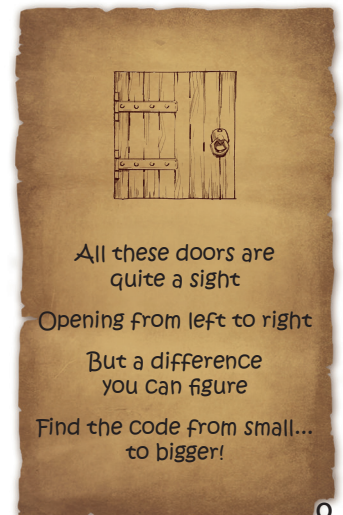 All these doors are
quite a sight
Opening from left to right
But a difference
you can figure
Find the code from small...
to bigger!